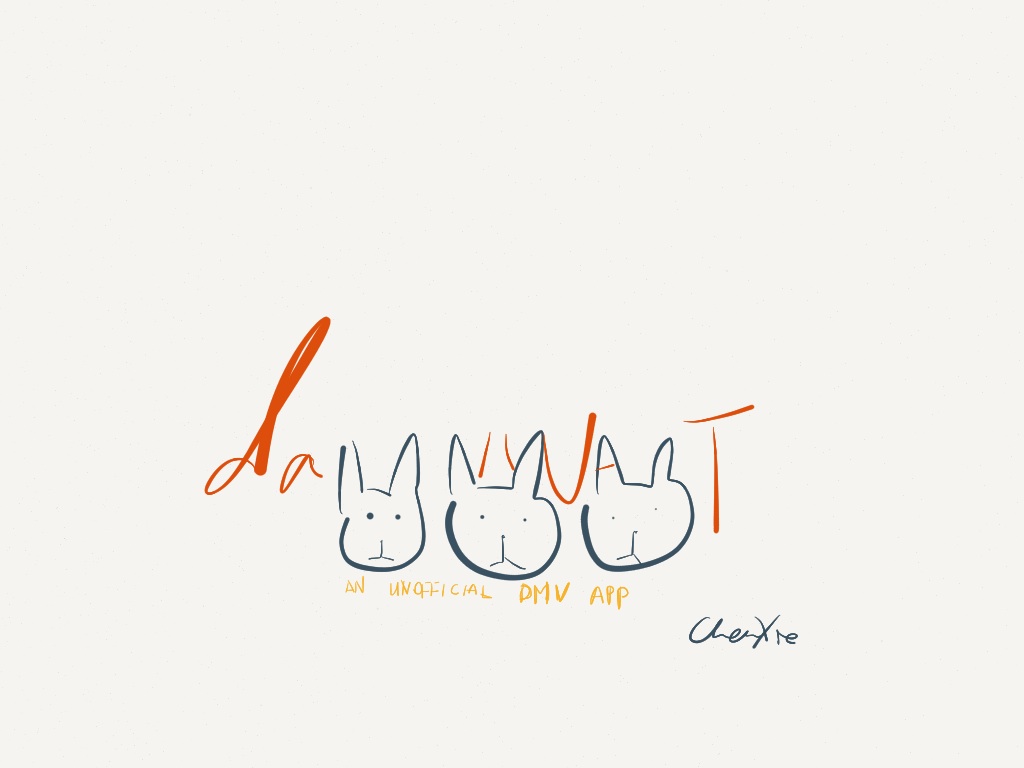 da
AN UNOFFICIAL DMV APP
ChenXie